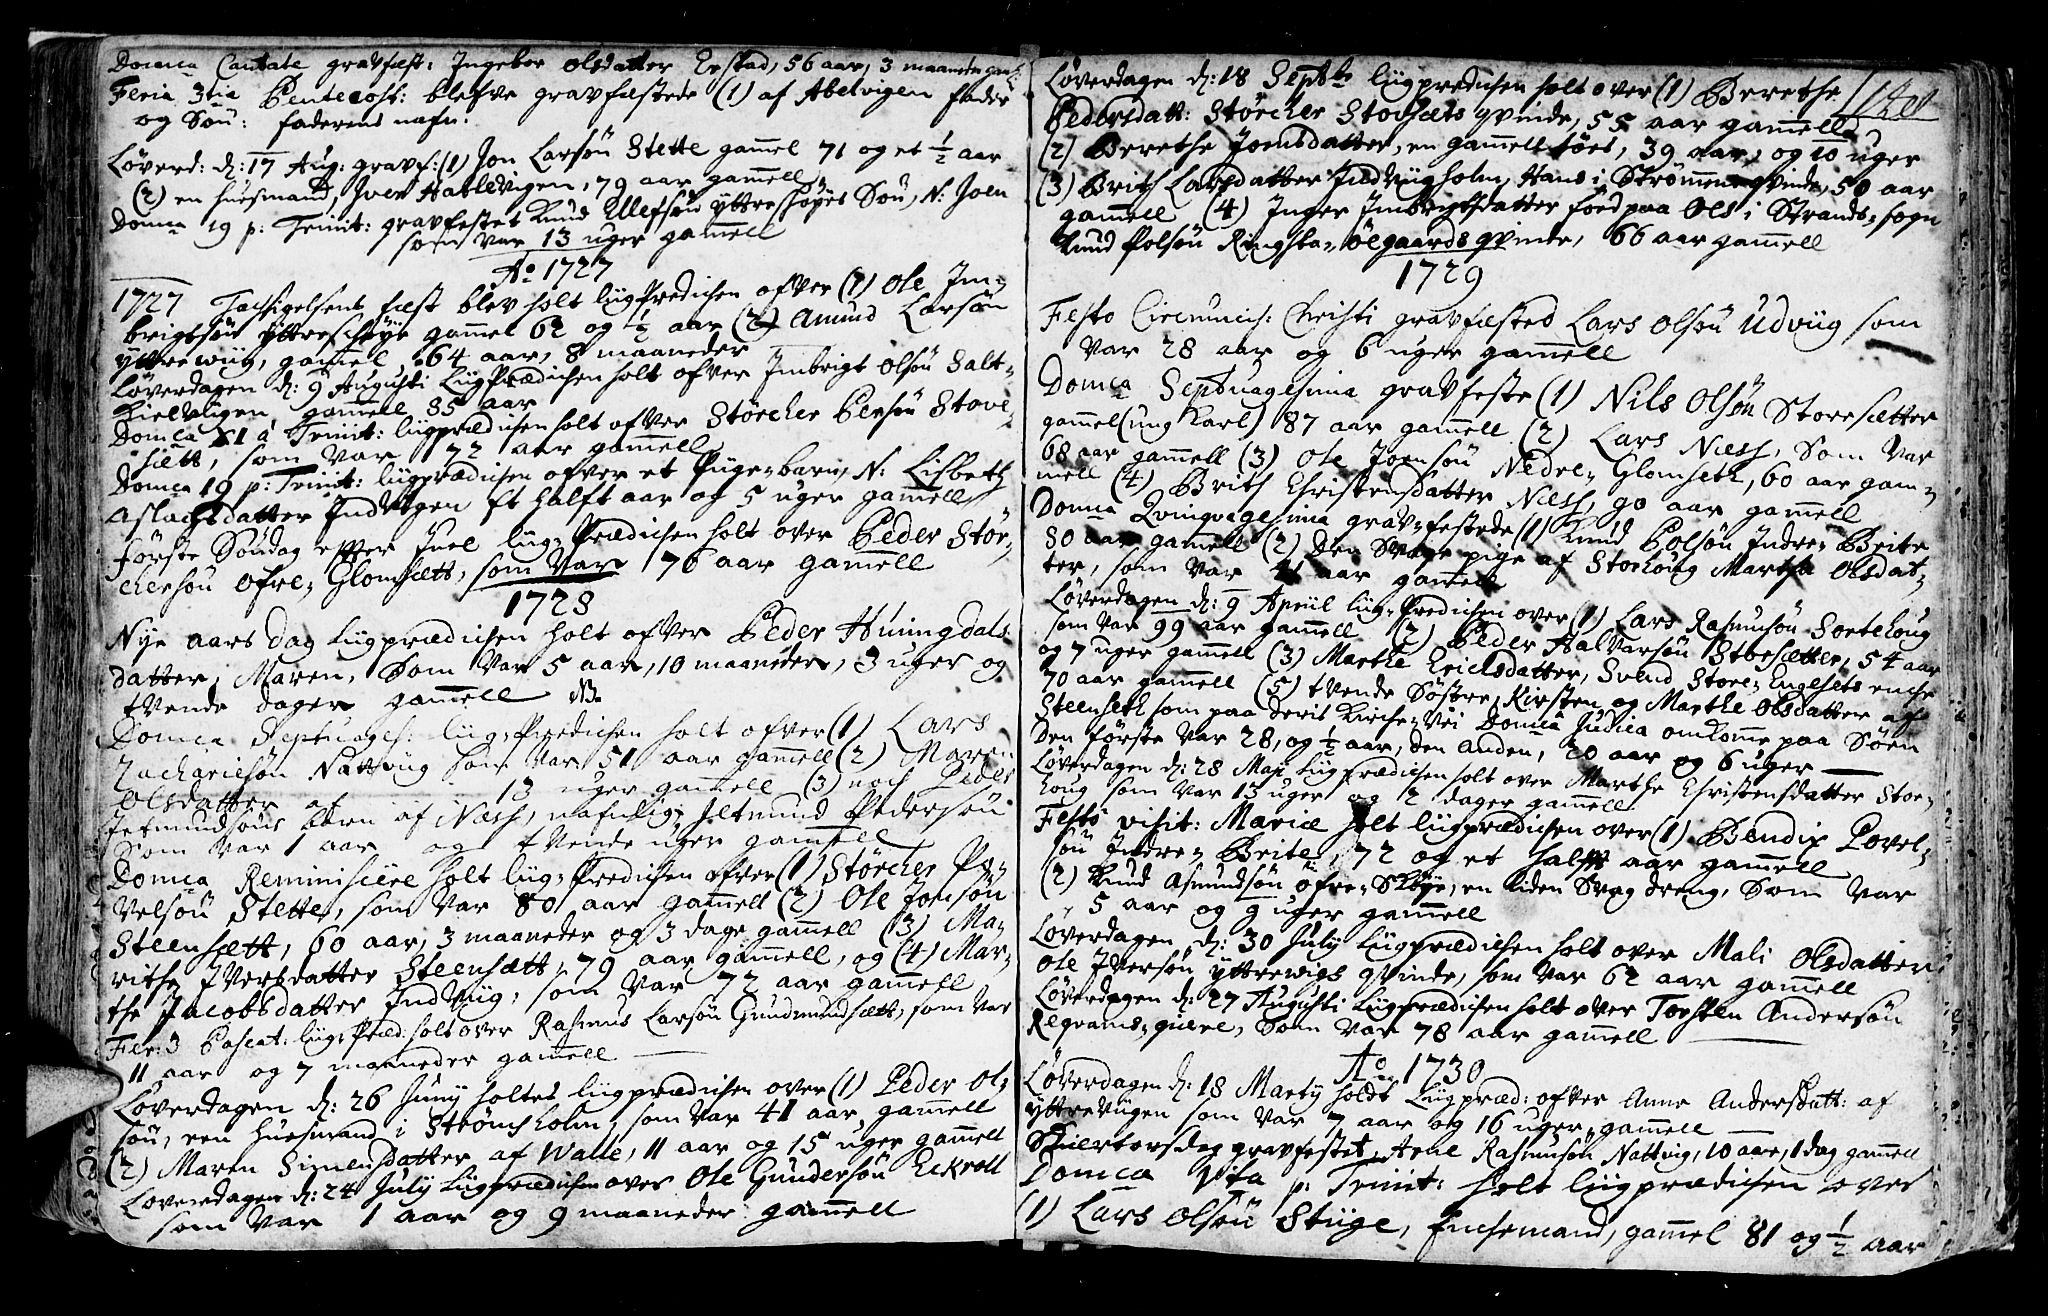 Domca Cantate gravfæst: Ingebor Olsdatter Erstad, 56 aar, 3 maaneder gaml:
Feria 3tia Pentecost: blefve gravfæstede (1) af Abelvigen fader
og Søn: faderens nafn:
Løverd: d: 17 Aug: gravf: (1) Jon Larsøn Stette gamel 71 og et ½ aar
(2) en huusmand, Iver Aarlevigen, 79 aar gamell
Domca 19 p: Trinit: gravfestet Knud Ellefsøn Yttre Høyes Søn, N: Joen
som var 13 uger gamell
Ao 1727
1727 Tachsigelsens fæst blev holt liigprædichen ofver (1) Ole Im-
brigtsøn Yttreschøye gamel 62 og ½ aar (2) Amund Larsøn
yttrewiig, gamel 64 aar, 8 maaneder
Løverdagen d: 9 Augusti Liigprædichen holt ofver Imbrigt Olsøn Salt-
Kieldvigen gamell 85 aar
Domca XI à Trinit: liigprædichen holt ofver Størcher Persøn Stove-
sætt, som var 72 aar gamell
Domca 19 p: Trinit: liigprædichen ofver et Pigebarn, N: Lisbeth
Aslachsdatter Indvigen Et halft aar og 5 uger gamell
første Søndag efter Juel liig-Prædichen holt over Peder Stør-
chersøn Øfre-Glomsætt, som var 76 aar gamell
1728
Nye aars Dag Liigprædichen holt ofver Peder Huningdals
datter, Maren, Som var 5 aar, 10 maaneder, 3 uger og
tvende dager gamell NB.
Domca Septuages: liig-Prædichen holt ofver (1) Lars
Zachariesøn Nattviig som var 51 aar gamell (2) Mari
Olsdatter af 13 uger gamell (3) noch Peder
Jetmundsøns barn af Næss, nafnlig Jetmund Pedersøn
Som var 1 aar og tvende uger gamell
Domca Reminiscere holt liig-Prædichen ofver (1) Størcher Po-
velsøn Stette, som var 80 aar gamell (2) Ole Joensøn
Steensætt, 60 aar, 3 maaneder og 3 dage gamell (3) Ma-
rithe Iversdatter Steensætt, 79 aar gamell, og (4) Mar-
the Jacobsdatter Indviig, som var 72 aar gamell
Fer: 3 Pascat: liig-Præd: holt over Rasmus Larsøn Gundmundsætt, som var
11 aar og 7 maaneder gamell
Løverdagen d: 26 Juny holtes liigprædichen over (1) Peder Ol-
søn, een huusmand i Strømsholm, som var 41 aar gamell
(2) Maren Simensdatter af Walle, 11 aar og 15 uger gamell
Løverdagen d: 24 July Liigprædichen over Ole Gundersøn Eckroll
som var 1 aar og 9 maaneder gamell
Løverdagen d: 18 Septbr liigprædichen holt over (1) Berethe
Pedersdatt: Størcher Stovsæts qvinde, 55 aar gamell
(2) Berethe Joensdatter, en gamell tøes, 39 aar, og 10 uger
(3) Brith Larsdatter Indviigholm, Hans i Strømmen qvinde, 50 aar
gamell (4) Inger Imbrigtsdatter fød paa Ols i Strands-sogn
Knud Polsøn Ringsta-ølgaards qvinde, 66 aar gamell
1729
Festo Circumcis: Christi gravfæsted Lars Olsøn Udviig som
var 28 aar og 6 uger gamell
Domca Septuagesima gravfeste (1) Nils Olsøn Storesætter
gammel (ung Karl) 87 aar gamell (2) Lars Næss, Som var
68 aar gamell (3) Ole Joensøn Nedre-Glomseth, 60 aar gam-
mell (4) Brith Christensdatter Næss, 90 aar gamell
Domca Qvinqvagesima grav-festede (1) Knud Polsøn Indre-Brite
80 aar gamell (2) Den Svage pige af Storhoug Martha Olsdat-
ter, som var 41 aar gamell
Løverdagen d: 9 Apriil liig-Prædichen over (1) Lars Rasmusøn Sortehoug
som var 99 aar gamell (2) Peder Halvarsøn Storsætter, 54 aar
og 7 uger gamell (3) Marthe Erichsdatter, Svend Store-Engesets enche
70 aar gamell (5) tvende Søstre, Kirsten og Marthe Olsdatter af
Steenseth som paa deris Kirche-vei Domca Judica omkomme paa Søen
Den første var 28, og ½ aar, den anden, 20 aar og 6 uger
Løverdagen d: 28 Maji Liigprædichen holt over Marthe Christensdatter Stor-
houg som var 13 uger og 2 dager gamell
Festo visit: Mariæ holt liigprædichen over (1) Bendix Povel-
søn Indre-Brite, 72 og et halft aar gamell
(2) Knud Asmundsøn Øfre-Skøye, en liden Svag dreng, Som var
5 aar og 9 uger gamell
Løverdagen d: 30 July Liigprædichen holt over Mali Olsdatter
Ole Iversøn Yttrewigs qvinde, som var 62 aar gamell
Løverdagen d: 27 Augusti Liigprædichen holt over Torsten Andersøn
Regrams-quere, Som var 78 aar gamell
Ao 1730
Løverdagen d: 18 Marty holdt Liigpræd: ofver Anne Andersdatt: af
yttreviigen som var 7 aar og 16 uger gamell
Skiertorsdag gravfestet, Arne Rasmusøn Nattvig, 10 aar, 1 dag gamell
Domca VIta p: Trinit: holt liigprædichen over
(1) Lars Olsøn Stiige, Enchemand, gamel 81 og ½ aar